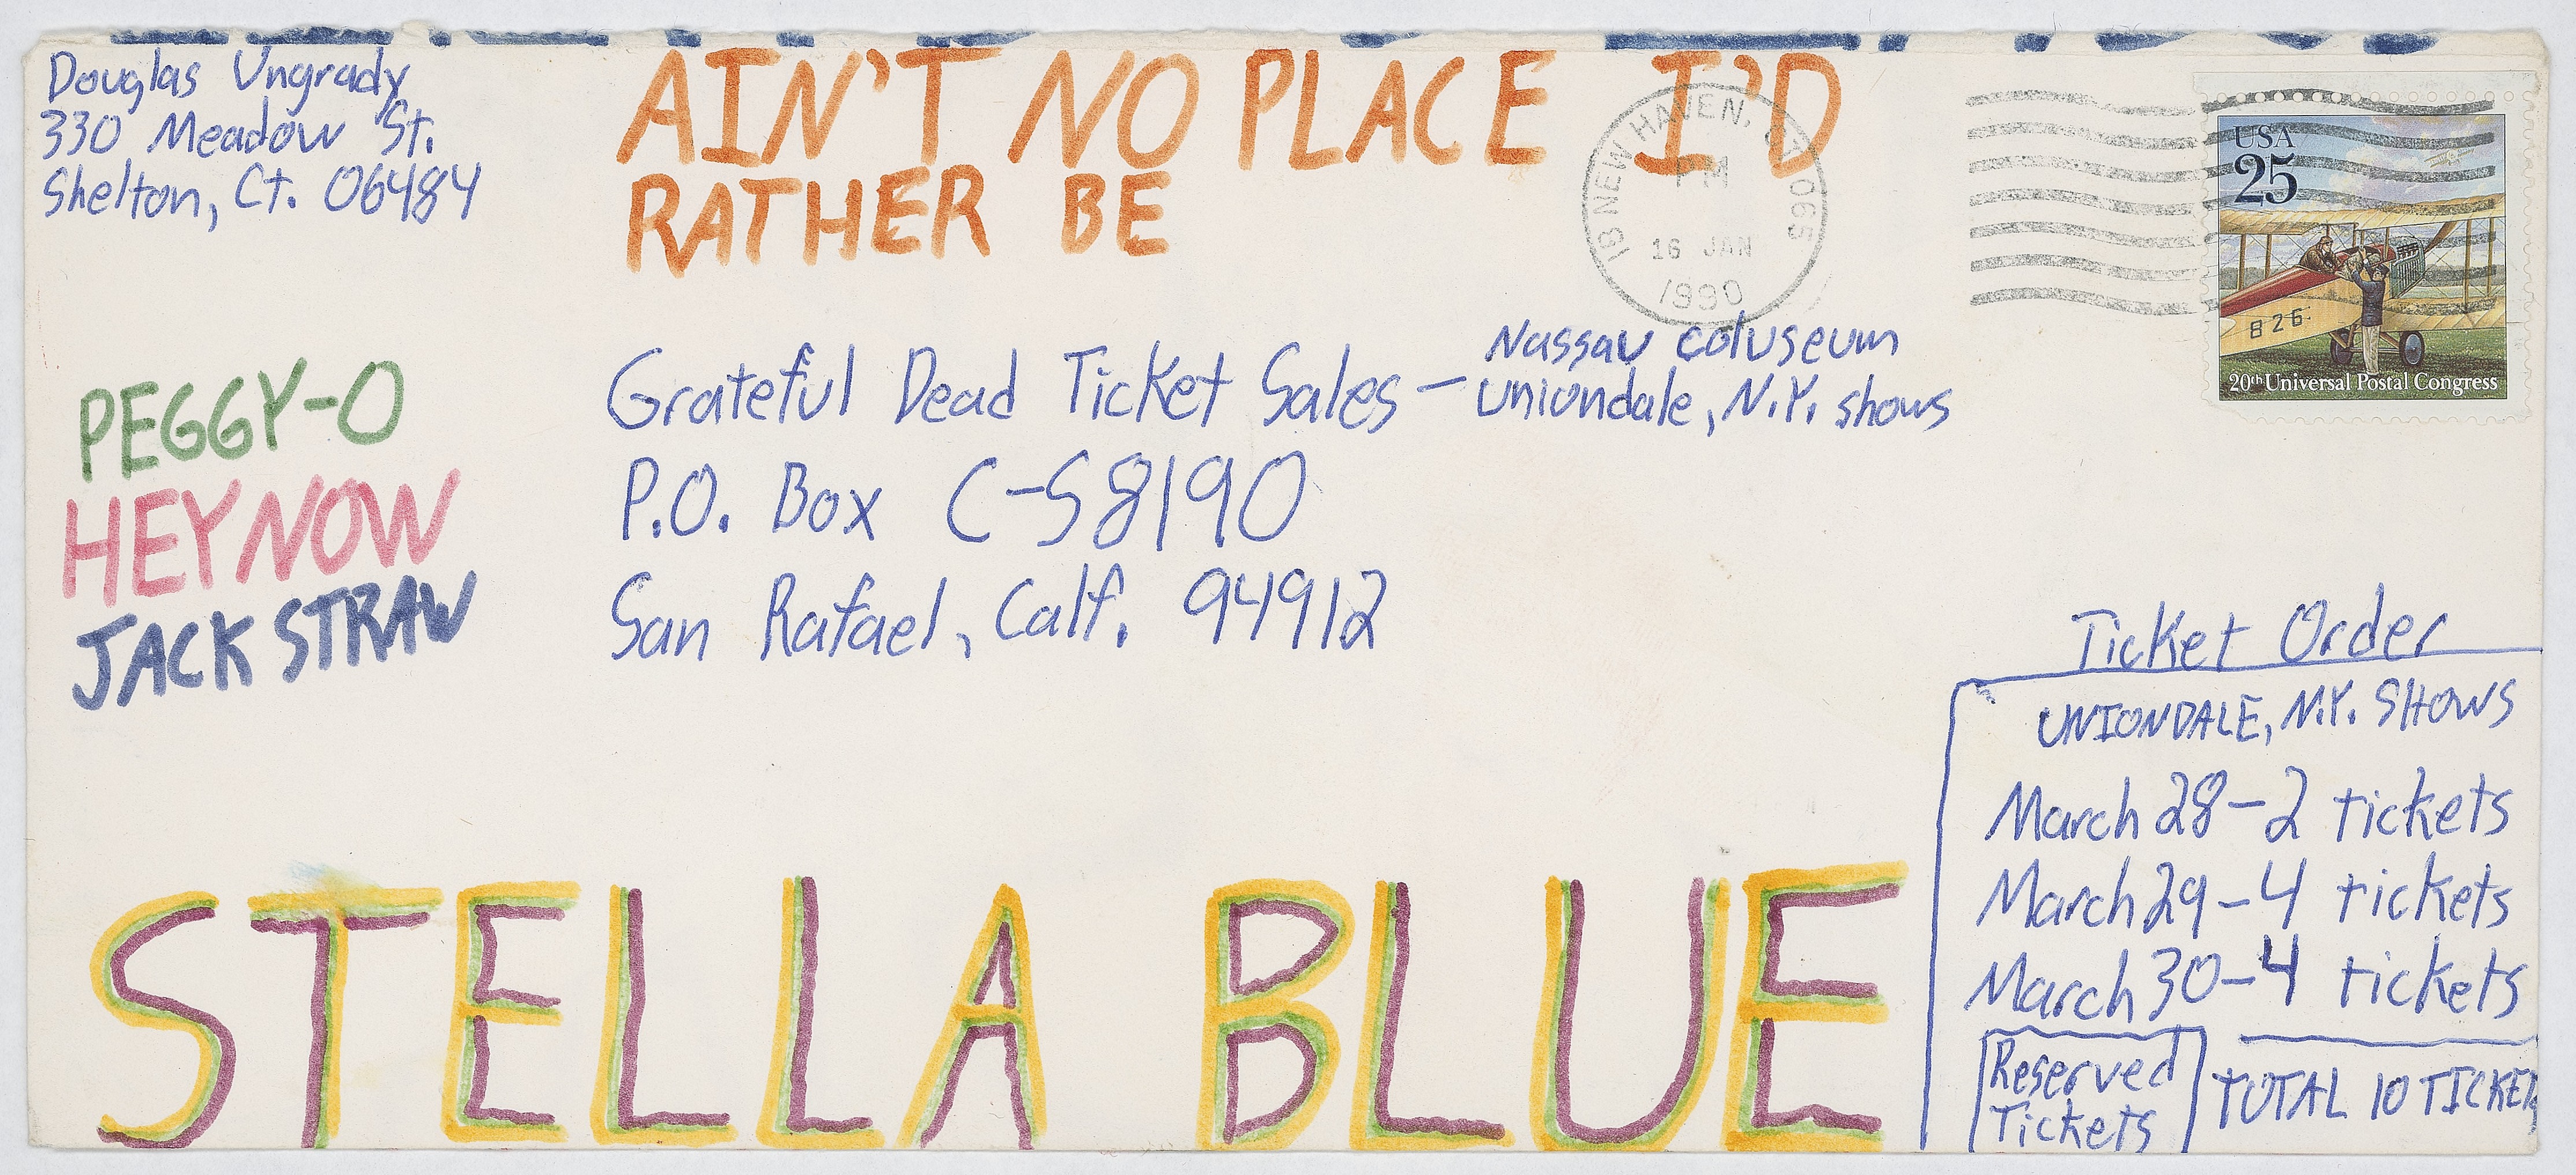 Douglas Ungrady
330 Meadow St.
Shelton, Ct. 06484
AIN'T NO PLACE I'D
RATHER BE
18 NEW HAVEN, CT 065
PM
16 JAN
1990
USA
25
826
20th Universal Postal Congress
PEGGY-O
HEY NOW
JACK STRAW
Grateful Dead Ticket Sales - Nassau coluseum
Uniondale, N.Y. shows
P.O. Box C-S8190
San Rafael, Calf. 94912
Ticket Order
UNIONDALE, N.Y. SHOWS
March 28-2 tickets
March 29-4 tickets
March 30-4 tickets
Reserved
Tickets
TOTAL 10 TICKETS
STELLA BLUE